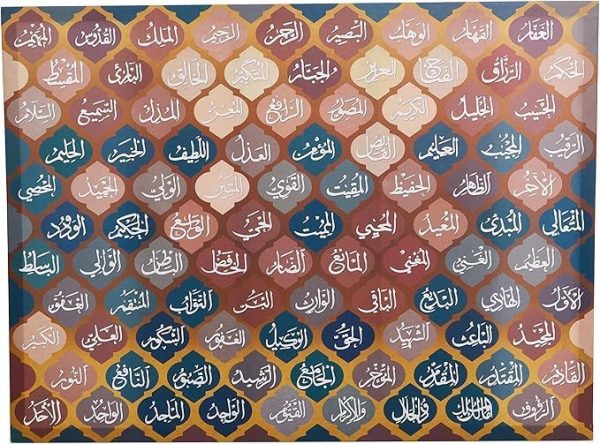 الغفار القهار الوهاب البصير الرحمن الرحيم الملك القدوس المهيمن
الحكم الرزاق الفتاح العزيز الجبار المتكبر الخالق البارئ المقسط
الحسيب الجليل الكريم المصور الرافع المعز المذل السميع السلام
الرقيب المجيب العليم القابض المؤمن العدل اللطيف الخبير الحليم
الآخر الظاهر الحفيظ المقيت القوي المتين الولي الحميد المحصي
المتعالي المبدئ المعيد المحيي المميت الحي الواسع الحكيم الودود
العظيم الغني المغني المانع الضار الخافض الباطن الوالي الباسط
الأول الهادي البديع الباقي الوارث البر التواب المنتقم العفو
المجيد الباعث الشهيد الحق الوكيل الغفور الشكور العلي الكبير
القادر المقتدر المقدم المؤخر الجامع الرشيد الصبور النافع النور
الرءوف مالك الملك ذو الجلال والإكرام القيوم الواجد الماجد الواحد الأحد